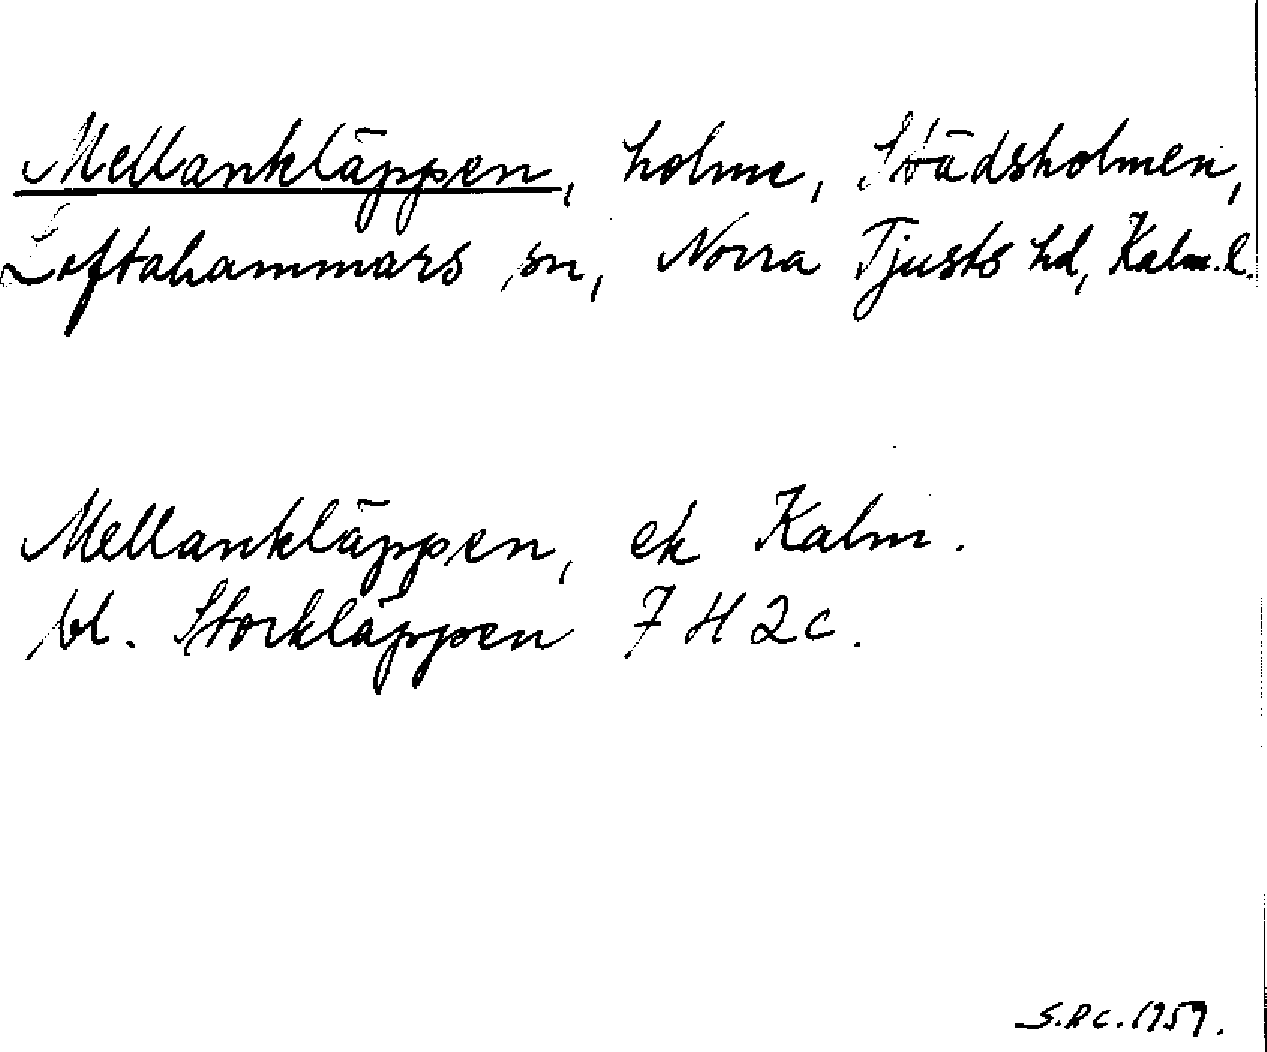 Mellankläppen, holme, Städsholmen,
Loftahammars sn, Norra Tjusts hd, Kalm.l.
Mellankläppen, ek Kalm.
bl. Storkläppen 7 H 2c.
S.P.C. 1959.